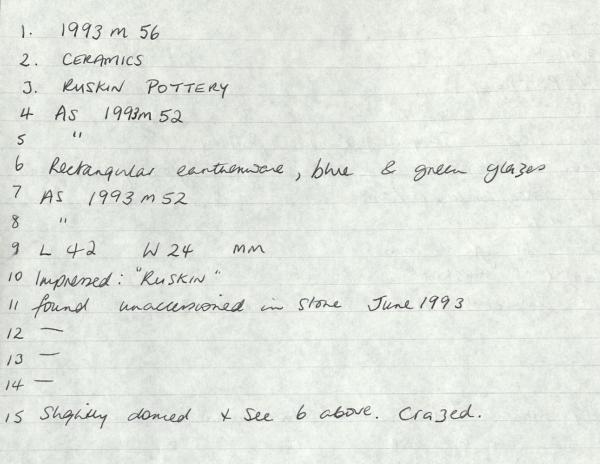 1. 1993 m 56
2. CERAMICS
3. RUSKIN POTTERY
4 AS 1993m 52
5 "
6 Rectangular earthenware, blue & green glazes
7 AS 1993 m 52
8 "
9 L 42 W 24 MM
10 Impressed: "RUSKIN"
11 found unaccessioned in store June 1993
12 —
13 —
14 —
15 Slightly domed & See 6 above. Crazed.